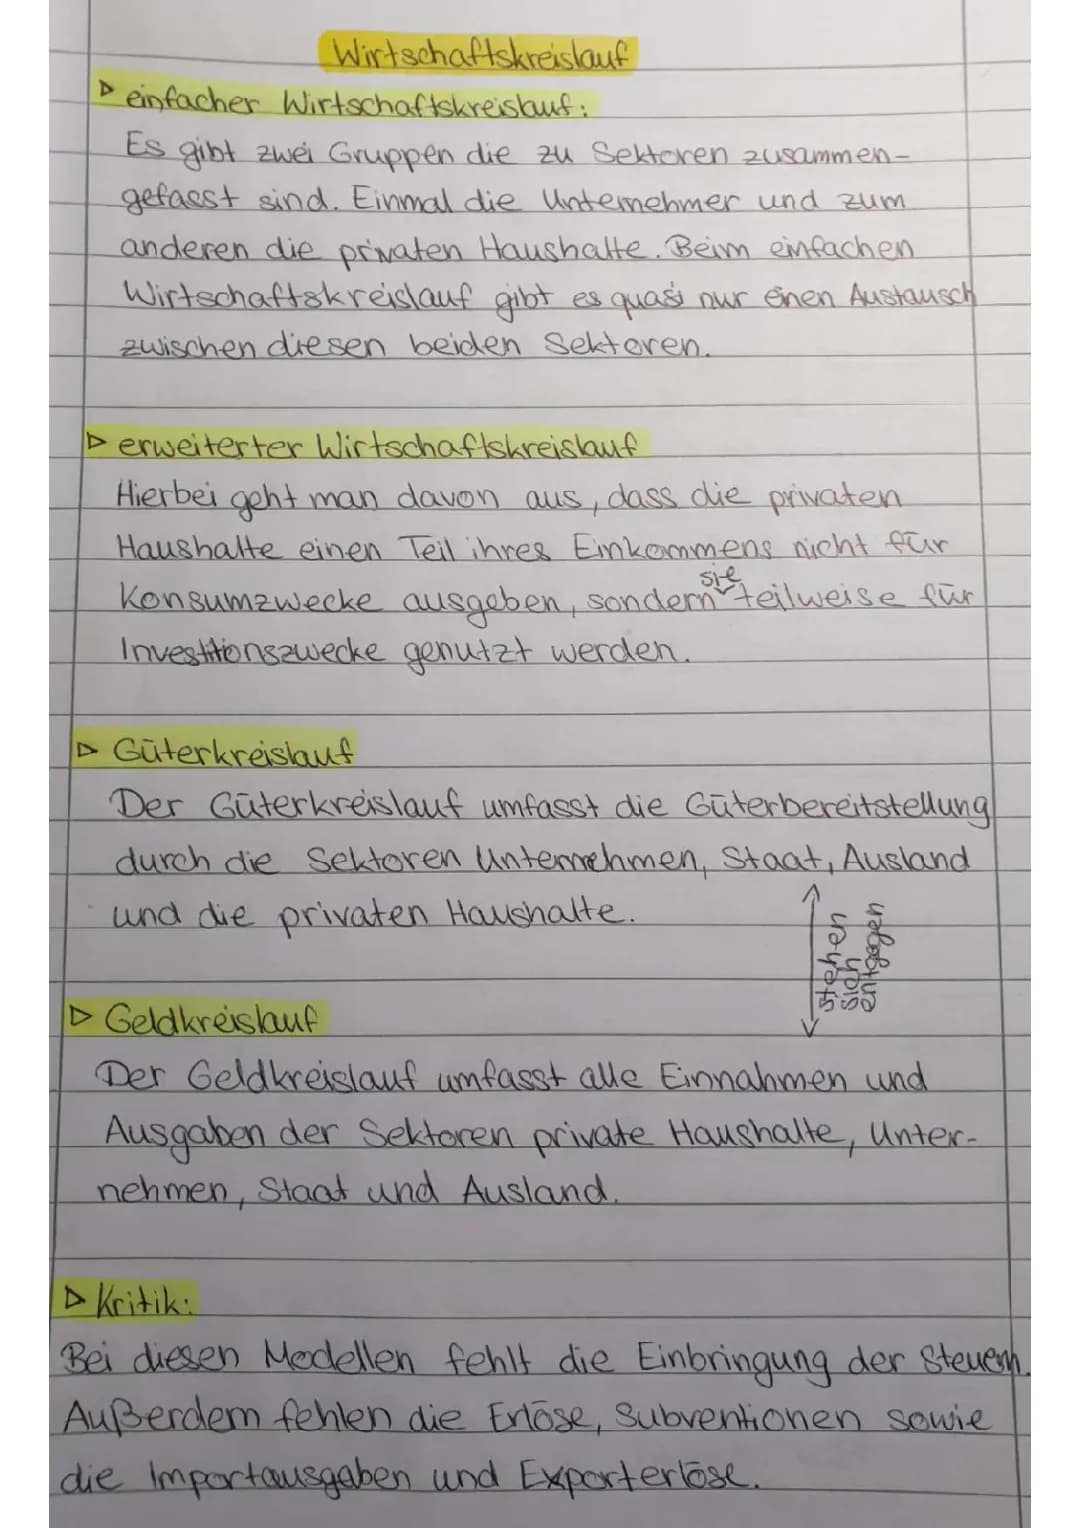 Wirtschaftskreislauf
▷ einfacher Wirtschaftskreislauf:
Es gibt zwei Gruppen die zu Sektoren zusammen-
gefasst sind. Einmal die Unternehmer und zum
anderen die privaten Haushalte. Beim einfachen
Wirtschaftskreislauf gibt es quasi nur einen Austausch
zwischen diesen beiden Sektoren.
▷ erweiterter Wirtschaftskreislauf
Hierbei geht man davon aus, dass die privaten
Haushalte einen Teil ihres Einkommens nicht für
Konsumzwecke ausgeben, sondern sie teilweise für
Investitionszwecke genutzt werden.
▷ Güterkreislauf
Der Güterkreislauf umfasst die Güterbereitstellung
durch die Sektoren Unternehmen, Staat, Ausland
und die privaten Haushalte.
stehen
sich
entgegen
▷ Geldkreislauf
Der Geldkreislauf umfasst alle Einnahmen und
Ausgaben der Sektoren private Haushalte, Unter-
nehmen, Staat und Ausland.
▷ Kritik:
Bei diesen Modellen fehlt die Einbringung der Steuern.
Außerdem fehlen die Erlöse, Subventionen sowie
die Importausgaben und Exporterlöse.